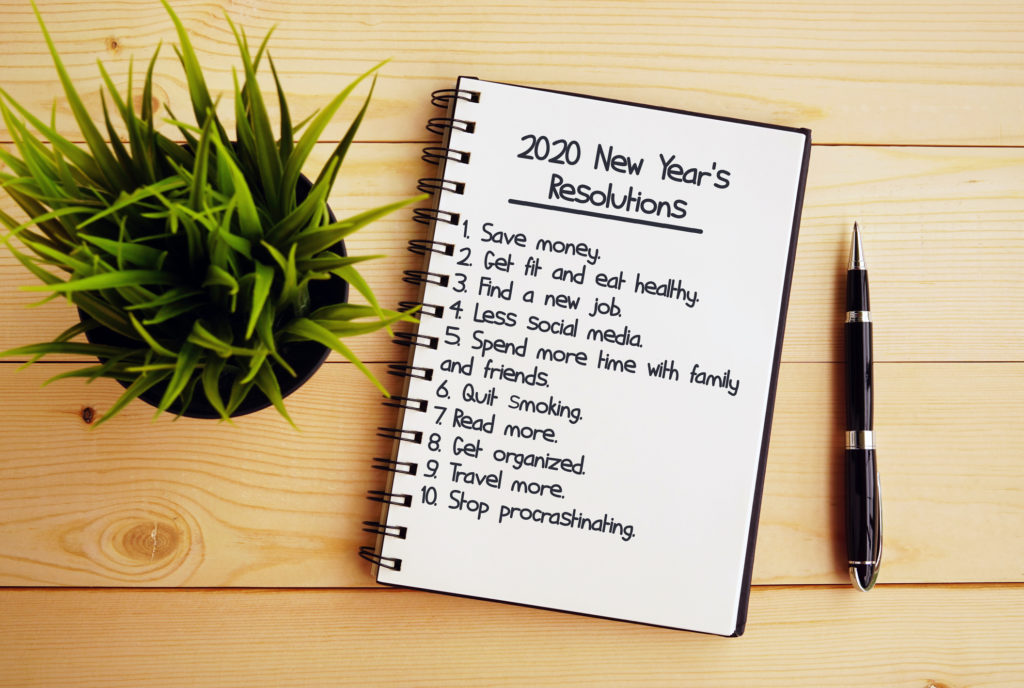 2020 New Year's
Resolutions
1. Save money.
2. Get fit and eat healthy.
3. Find a new job.
4. Less social media.
5. Spend more time with family
and friends.
6. Quit smoking.
7. Read more.
8. Get organized.
9. Travel more.
10. Stop procrastinating.